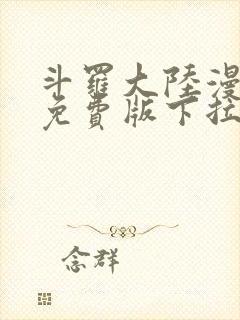 斗羅大陸漫
免費版下拉
念群